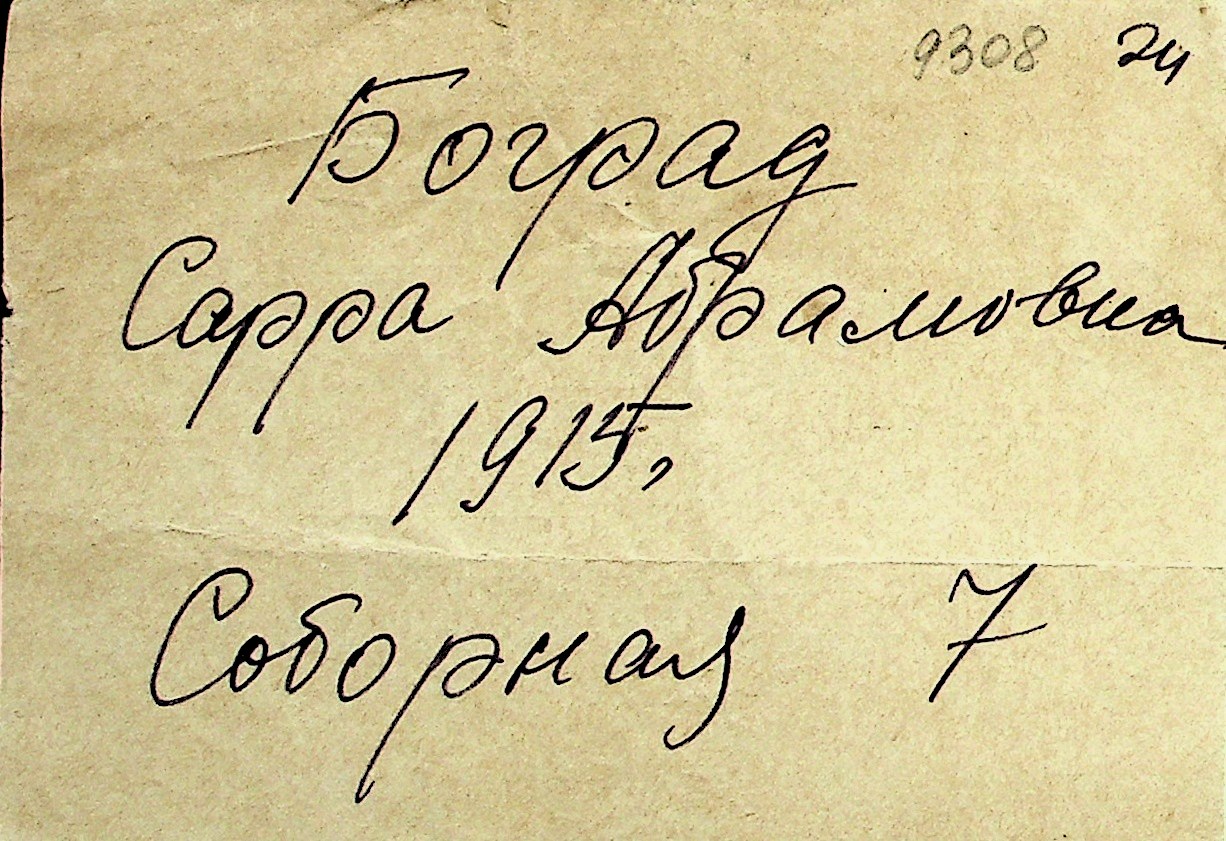 9308 24
Боград
Сарра Абрамовна
1915,
Соборная 7